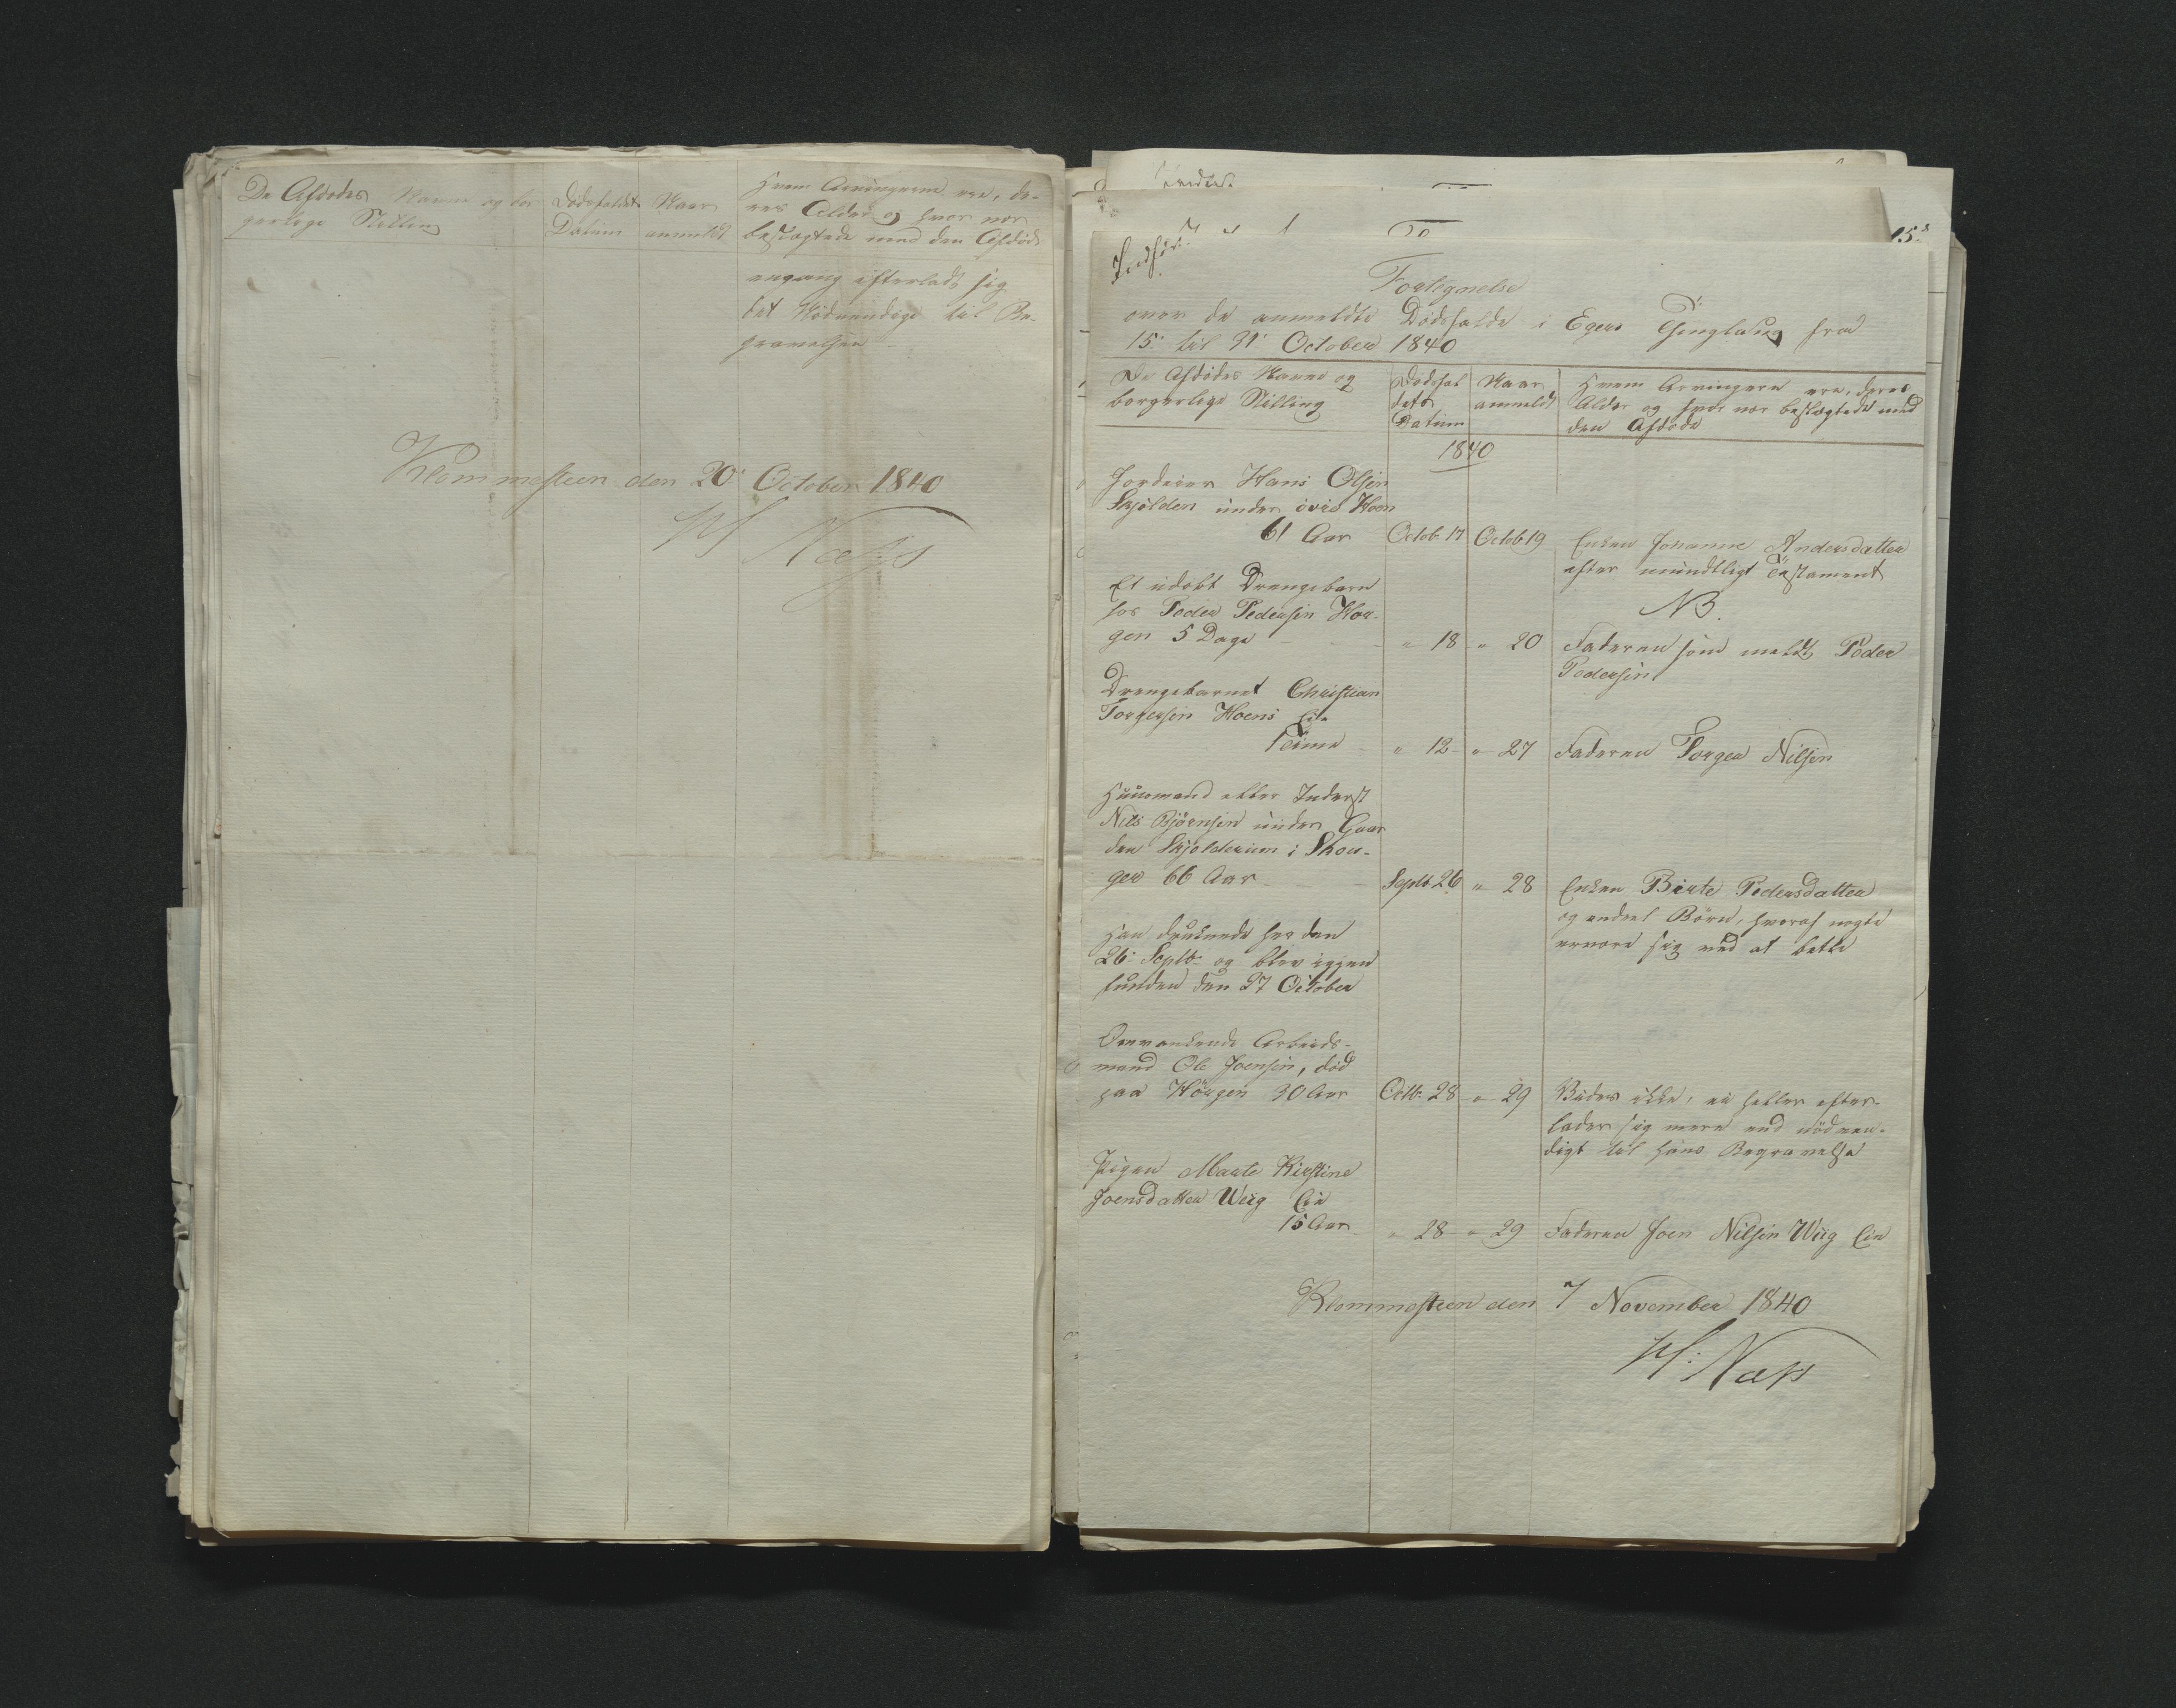 De Afdødes Navne og bor-
gerlige Stilling
Dødsfaldets
Datum
Naar
anmeldt
Hvem Arvingerne ere, de-
res Alder og hvor nær
beslægtede med den Afdøde
engang efterladt sig
det Nødvendige til Be-
gravelsen
Klommesteen den 20 October 1840
Næss
Indført
Fortegnelse
over de anmeldte Dødsfalde i Egers Tinglaug fra
15 til 31 October 1840
De Afdødes Navne og
borgerlige Stilling
Dødsfal
dets
Datum
Naar
anmeldt
Hvem Arvingerne ere, deres
Alder og hvor nær beslægtede med
den Afdøde
1840
Jordeier Hans Olsen
Skjolden under øvre Hoen
61 Aar Octob. 17 Octob 19 Enken Johanne Andersdatter
efter mundtligt Testament
NB.
Et udøbt Drengebarn
hos Peder Pedersen Hor-
gen 5 Dage " 18 " 20 Faderen som meldt Peder
Pedersen
Drengebarnet Christian
Torgersen Hoens Eie
1 Time " 12 " 27 Faderen Torger Nilsen
Huusmand eller Inderst
Nils Bjørnsen under Gaar
den Skjolderum i Skou-
ger 66 Aar Septb 26 " 28 Enken Birte Pedersdatter
og endeel Børn, hvoraf nogle
ernære sig ved at betle
Han druknede her den
26 Septb og blev igjen
funden den 27 October
Omvankende Arbeids-
mand Ole Joensen, død
paa Horgen 30 Aar Octb. 28 " 29 Vides ikke, ei heller efter-
lader sig mere end nødven-
digt til hans Begravelse
Pigen Marte Kirstine
Joensdatter Wiig Eie
15 Aar " 28 " 29 Faderen Joen Nilsen Wiig Eie
Klommesteen den 7 November 1840
Næss